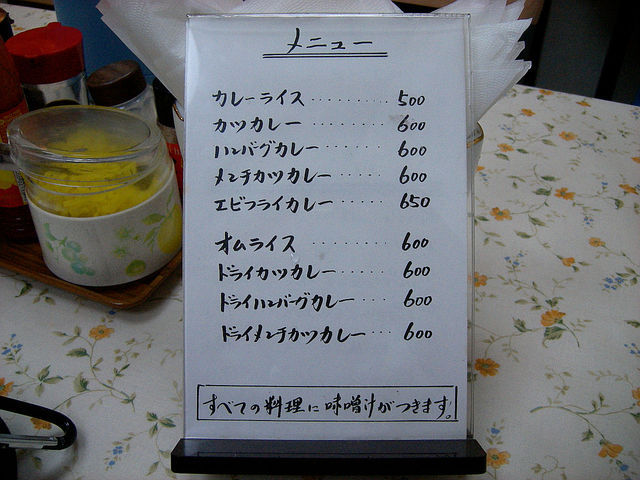 メニュー
カレーライス ・・・・・・・・・ 500
カツカレー ・・・・・・・・・ 600
ハンバーグカレー ・・・・・・ 600
メンチカツカレー ・・・・・・ 600
エビフライカレー ・・・・・・ 650
オムライス ・・・・・・・・・ 600
ドライカツカレー ・・・・・・ 600
ドライハンバーグカレー ・・・・ 600
ドライメンチカツカレー ・・・ 600
すべての料理に味噌汁がつきます。